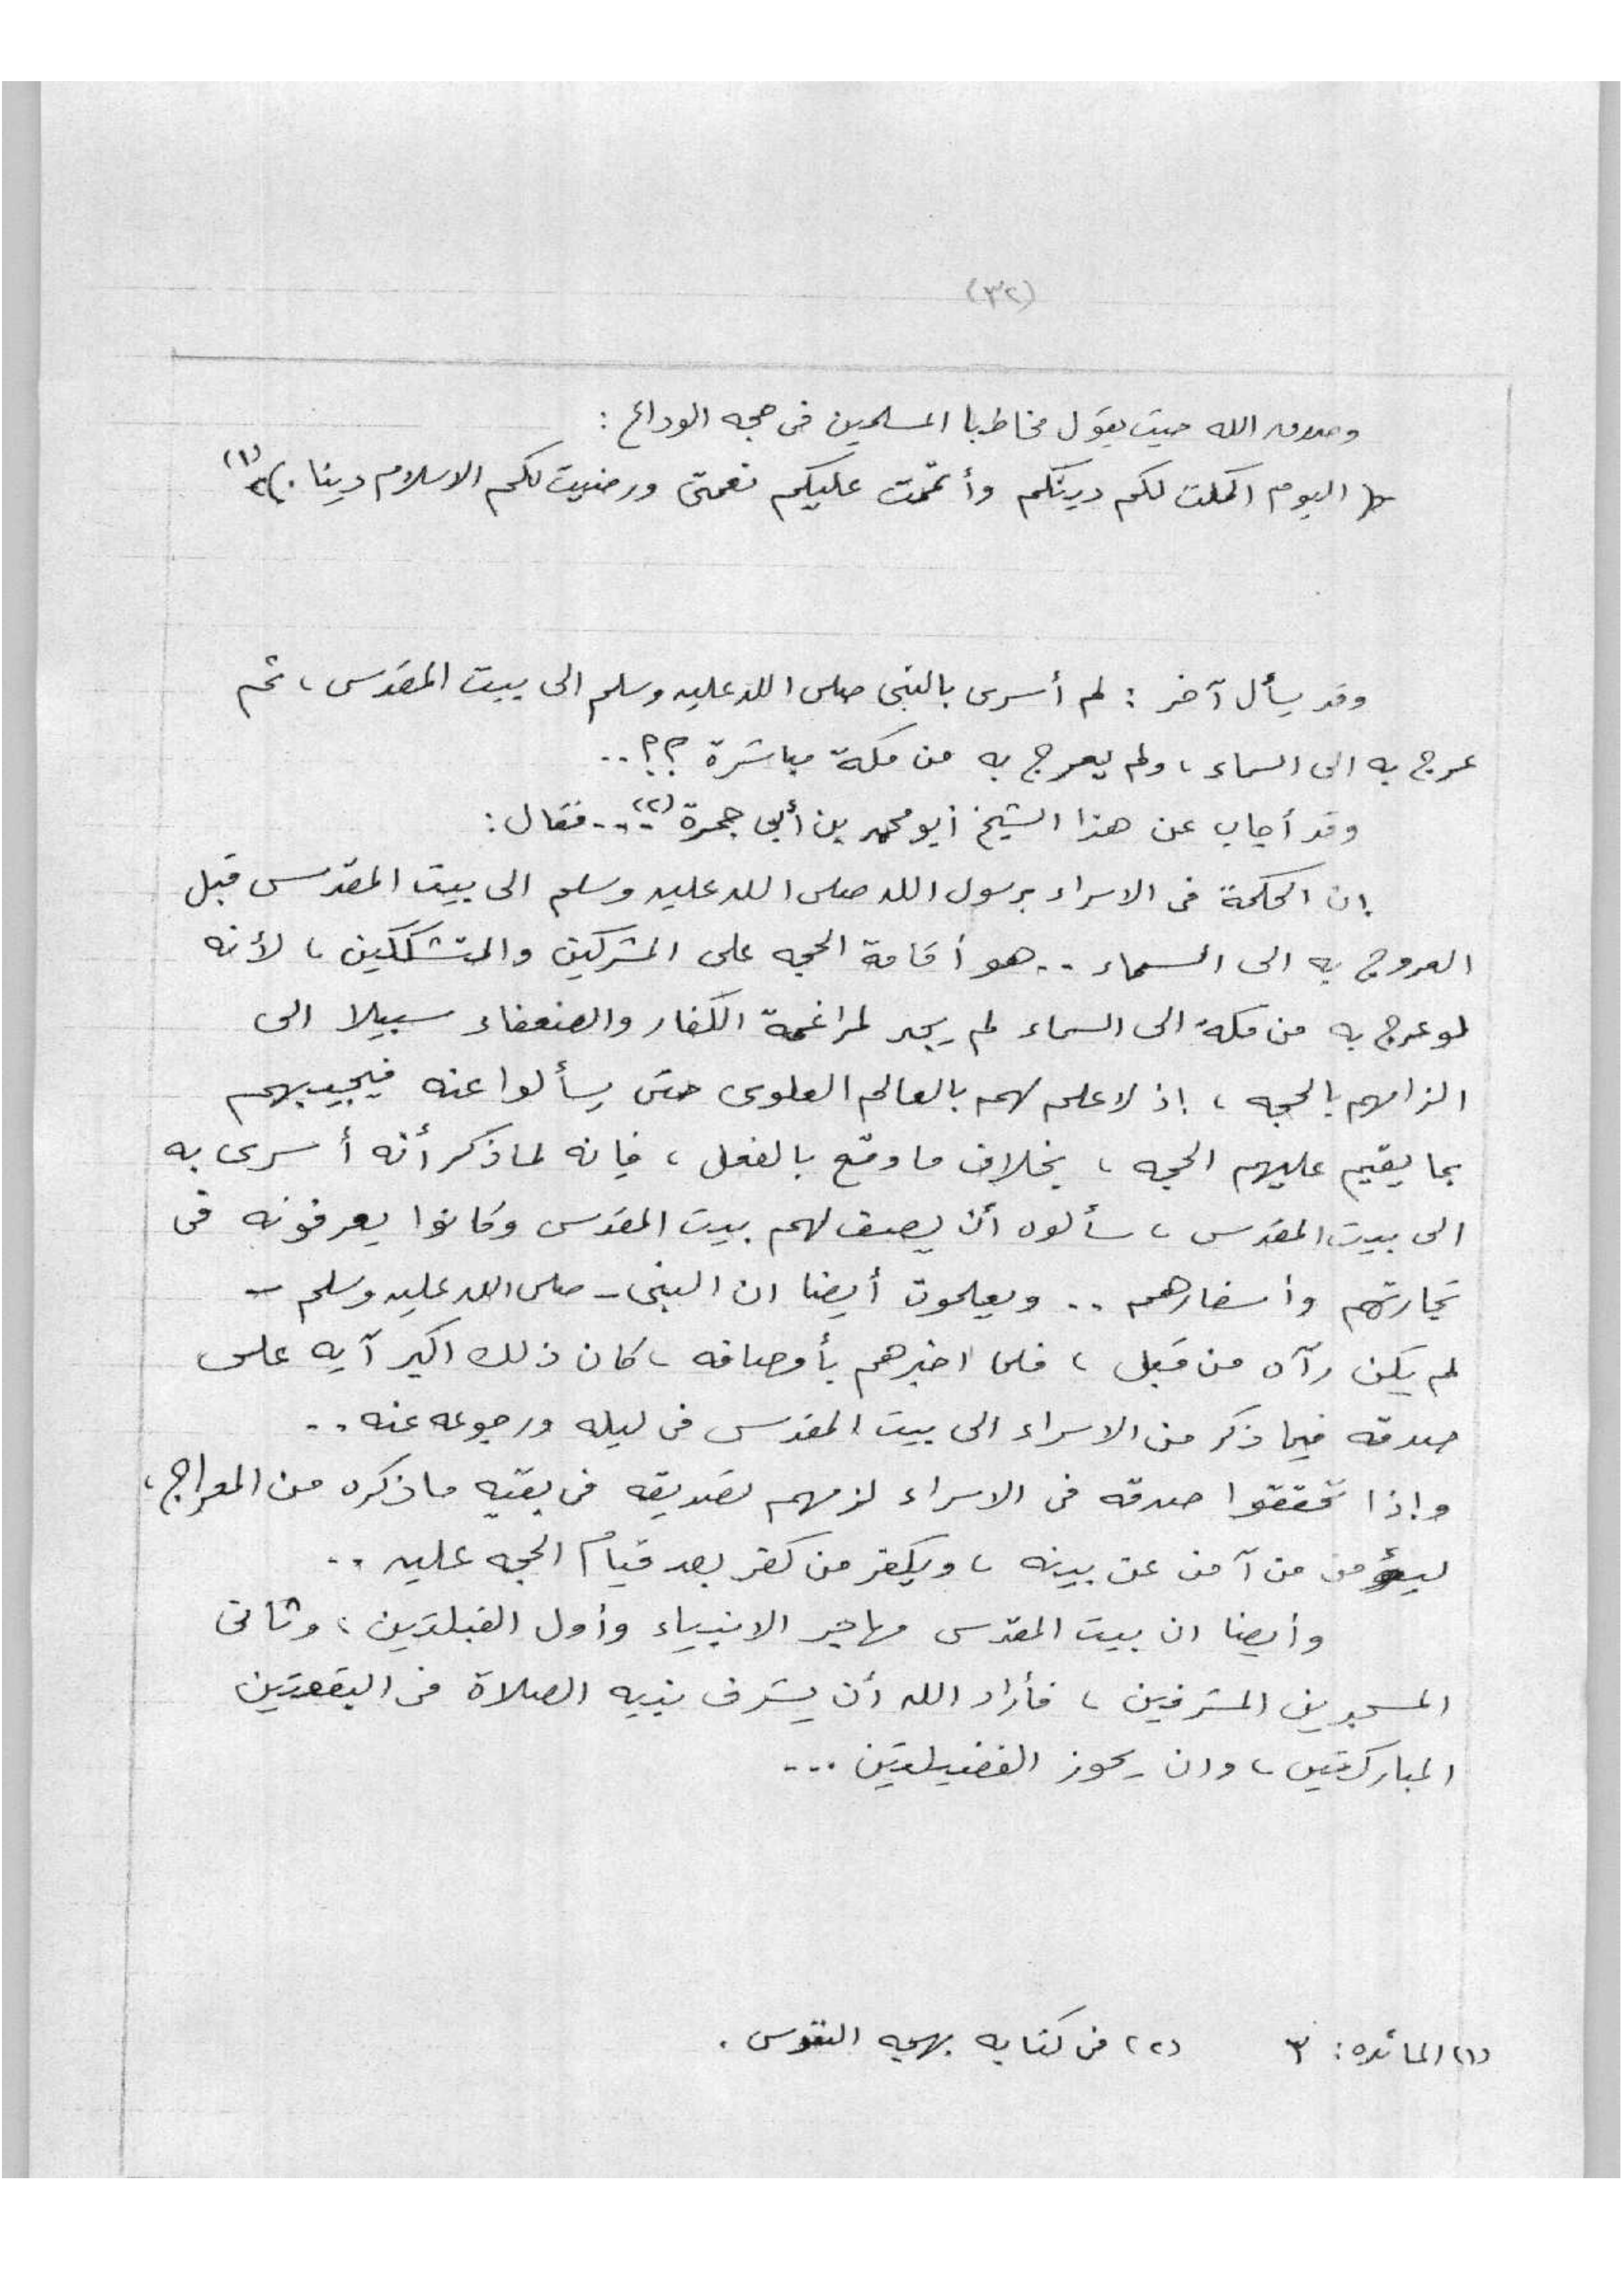 (٣٢)
وصدق الله حيث يقول مخاطبا المسلمين فى حجه الوداع :
﴿ اليوم اكملت لكم دينكم وأتممت عليكم نعمتى ورضيت لكم الاسلام دينا . ﴾ (١)
وقد يسأل آخر : لم أسرى بالنبى صلى الله عليه وسلم الى بيت المقدس ، ثم
عرج به الى السماء ، ولم يعرج به من مكة مباشرة ؟؟ ..
وقد أجاب عن هذا الشيخ أبو محمد بن أبى جمرة (٢) ... فقال :
إن الحكمة فى الاسراء برسول الله صلى الله عليه وسلم الى بيت المقدس قبل
العروج به الى السماء .. هو أقامة الحجه على المشركين والمتشككين ، لأنه
لو عرج به من مكة الى السماء لم يجد لمراغمة الكفار والضعفاء سبيلا الى
الزامهم بالحجه ، إذ لا علم لهم بالعالم العلوى حتى يسألوا عنه فيجيبهم
بما يقيم عليهم الحجه ، بخلاف ما وقع بالفعل ، فإنه لما ذكر أنه أسرى به
الى بيت المقدس ، سألوه أن يصف لهم بيت المقدس وكانوا يعرفونه فى
تجارتهم وأسفارهم .. ويعلمون أيضا ان النبى - صلى الله عليه وسلم -
لم يكن رآه من قبل ، فلما اخبرهم بأوصافه ، كان ذلك اكبر آيه على
صدقه فيما ذكر من الاسراء الى بيت المقدس فى ليله ورجوعه عنه ..
وإذا تحققوا صدقه فى الاسراء لزمهم تصديقه فى بقيه ما ذكره من المعراج ،
ليؤمن من آمن عن بينه ، ويكفر من كفر بعد قيام الحجه عليه ..
وأيضا ان بيت المقدس مهاجر الانبياء وأول القبلتين ، وثانى
المسجدين المشرفين ، فأراد الله أن يشرف نبيه الصلاة فى البقعتين
المباركتين ، وان يحوز الفضيلتين ...
(١) المائده : ٣ (٢) فى كتابه بهجه النفوس .